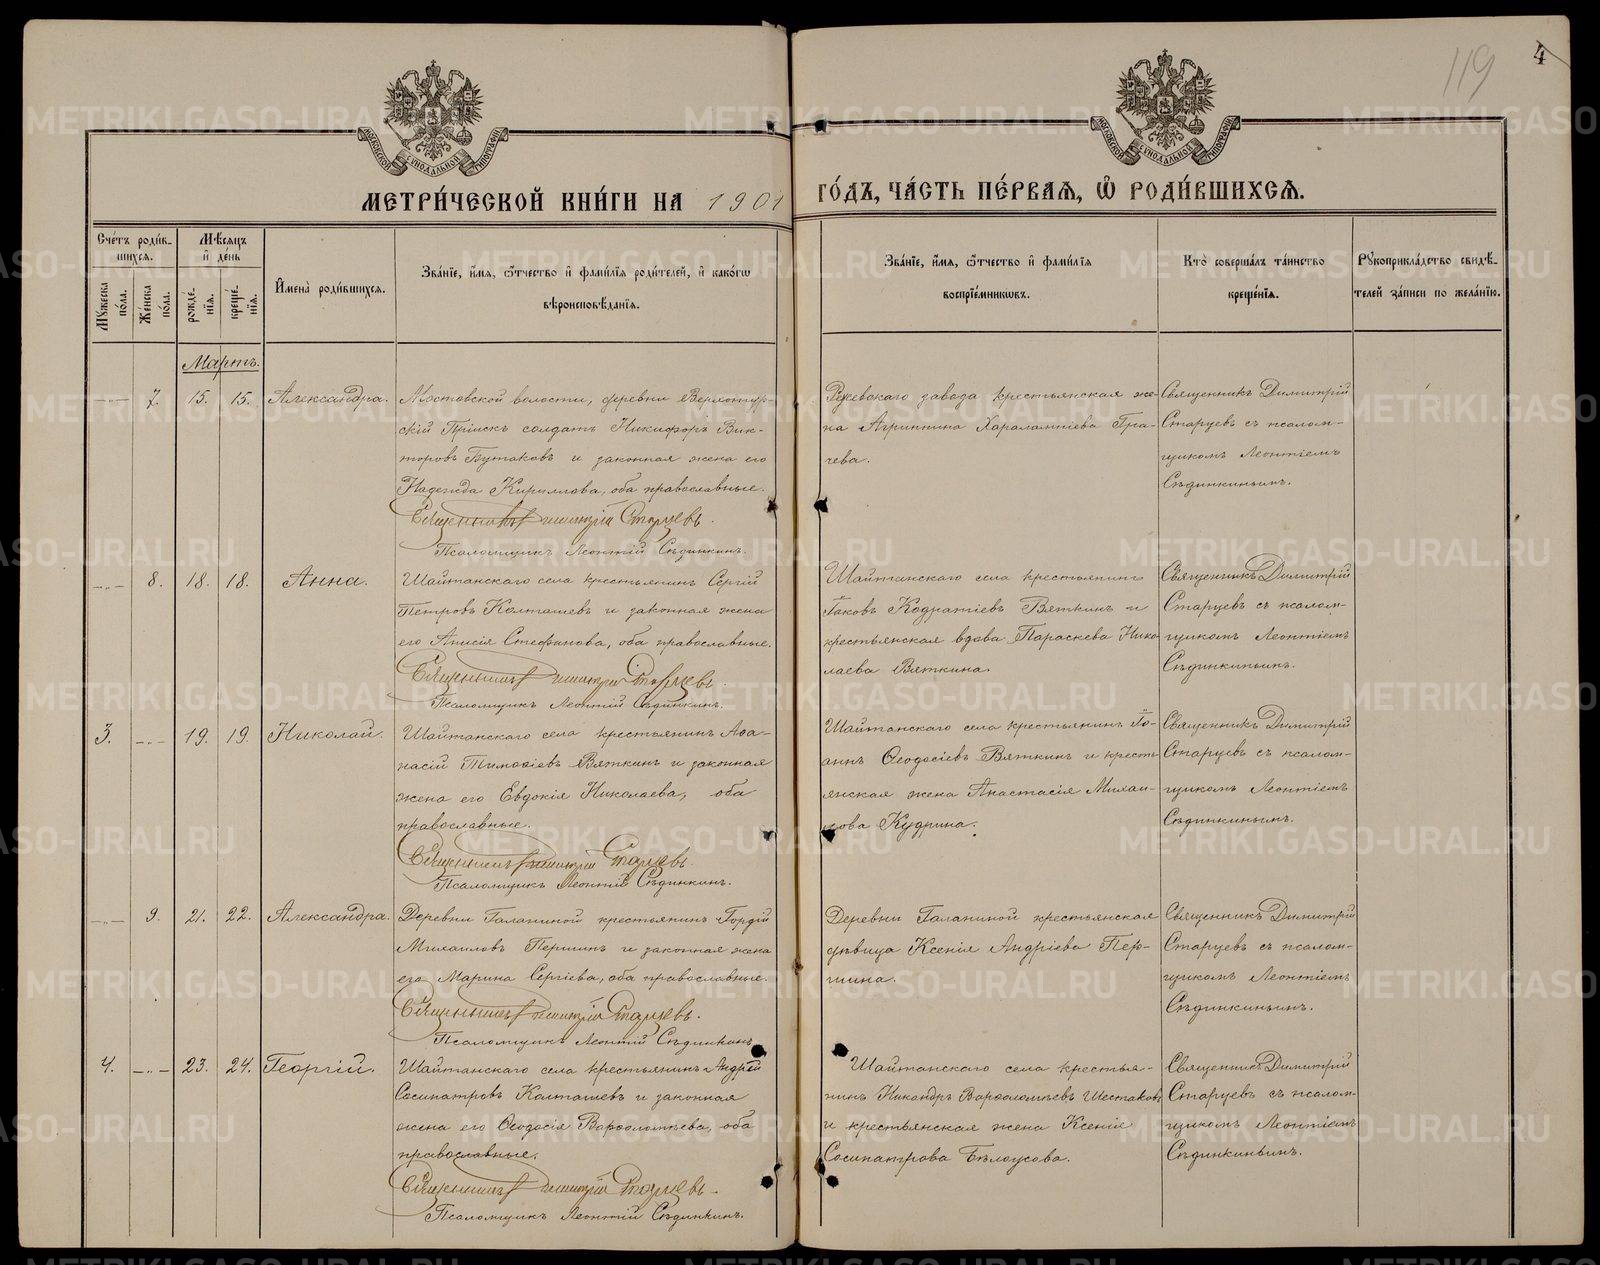 119
4
МОСКОВСКОЙ СѴНОДАЛЬНОЙ ТИПОГРАФІИ
МОСКОВСКОЙ СѴНОДАЛЬНОЙ ТИПОГРАФІИ
МЕТРИ́ЧЕСКОЙ КНИ́ГИ НА 1901
ГО́ДЪ, ЧА́СТЬ ПЕ́РВАѦ, Ѡ҆ РОДИ́ВШИХСѦ.
Сче́тъ роди́в-
шихсѧ.
Мꙋ́жеска по́ла.
Же́нска по́ла.
Мѣ́сѧцъ
и҆ де́нь
рожде́-
нїѧ.
креще́-
нїѧ.
И҆мена̀ роди́вшихсѧ.
Зва́нїе, и҆́мѧ, ѻ҆́тчество и҆ фами́лїѧ роди́телей, и҆ како́гѡ
вѣроисповѣ́данїѧ.
Зва́нїе, и҆́мѧ, ѻ҆́тчество и҆ фами́лїѧ
воспрїе́мникѡвъ.
Кто̀ соверша́лъ та́инство
креще́нїѧ.
Рꙋкоприкла́дство свидѣ́-
телей за́писи по жела́нїю.
Мартъ.
7. 15. 15. Александра.
Мостовской волости, деревни Верхотур-
скій Пріискъ солдатъ Никифоръ Вик-
торовъ Бутаковъ и законная жена его
Надежда Кириллова, оба православные.
Священникъ Димитрій Старцевъ.
Псаломщикъ Леонтій Съдинкинъ.
Режевскаго завода крестьянская же-
на Агриппина Харалампіева Гра-
чева.
Священникъ Димитрій
Старцевъ съ псалом-
щикомъ Леонтіемъ
Съдинкинымъ.
8. 18. 18. Анна.
Шайтанскаго села крестьянинъ Сергій
Петровъ Колташевъ и законная жена
его Анисія Стефанова, оба православные.
Священникъ Димитрій Старцевъ.
Псаломщикъ Леонтій Съдинкинъ.
Шайтанскаго села крестьянинъ
Іаковъ Кодратіевъ Вяткинъ и
крестьянская вдова Параскева Нико-
лаева Вяткина.
Священникъ Димитрій
Старцевъ съ псалом-
щикомъ Леонтіемъ
Съдинкинымъ.
3. 19. 19. Николай.
Шайтанскаго села крестьянинъ Аѳа-
насій Тимоѳіевъ Вяткинъ и законная
жена его Евдокія Николаева, оба
православные.
Священникъ Димитрій Старцевъ.
Псаломщикъ Леонтій Съдинкинъ.
Шайтанскаго села крестьянинъ Іо-
аннъ Ѳеодосіевъ Вяткинъ и кресть-
янская жена Анастасія Михаи-
лова Кудрина.
Священникъ Димитрій
Старцевъ съ псалом-
щикомъ Леонтіемъ
Съдинкинымъ.
9. 21. 22. Александра.
Деревни Галаниной крестьянинъ Гордій
Михаиловъ Першинъ и законная жена
его Марина Сергіева, оба православные.
Священникъ Димитрій Старцевъ.
Псаломщикъ Леонтій Съдинкинъ.
Деревни Галаниной крестьянская
дѣвица Ксенія Андріева Пер-
шина.
Священникъ Димитрій
Старцевъ съ псалом-
щикомъ Леонтіемъ
Съдинкинымъ.
4. 23. 24. Георгій.
Шайтанскаго села крестьянинъ Андрей
Сосипатровъ Колташевъ и законная
жена его Ѳеодосія Варѳоломѣева, оба
православные.
Священникъ Димитрій Старцевъ.
Псаломщикъ Леонтій Съдинкинъ.
Шайтанскаго села крестья-
нинъ Никандръ Варѳоломѣевъ Шестаковъ
и крестьянская жена Ксенія
Сосипатрова Бѣлоусова.
Священникъ Димитрій
Старцевъ съ псалом-
щикомъ Леонтіемъ
Съдинкинымъ.
METRIKI.GASO-URAL.RU